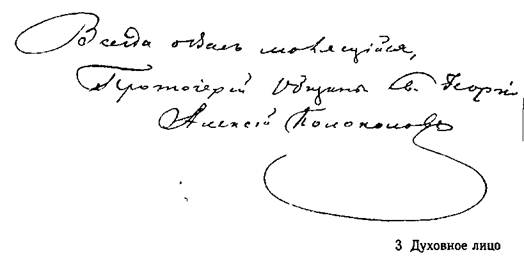 Всегда о Васъ молящійся,
Протоіерей Общины Св. Георгі
Алексій Колоколовъ
3 Духовное лицо